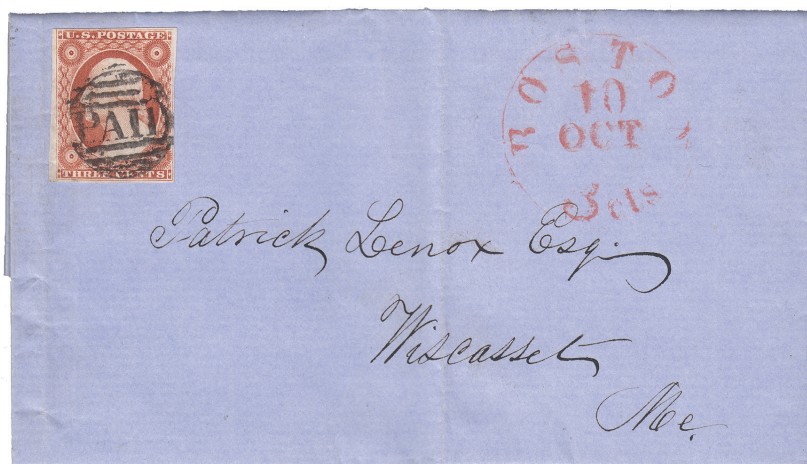 U.S. POSTAGE
PAID
THREE CENTS
BOSTON
10
OCT
3 cts
Patrick Lenox Esq.
Wiscasset
Me.